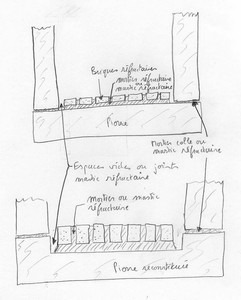 Briques réfractaires
mortier réfractaire
ou
mastic réfractaire
Pierre
Mortier colle ou
mastic réfractaire
Espaces vides ou joints
mastic réfractaire
mortier ou mastic
réfractaire
Pierre reconstituée